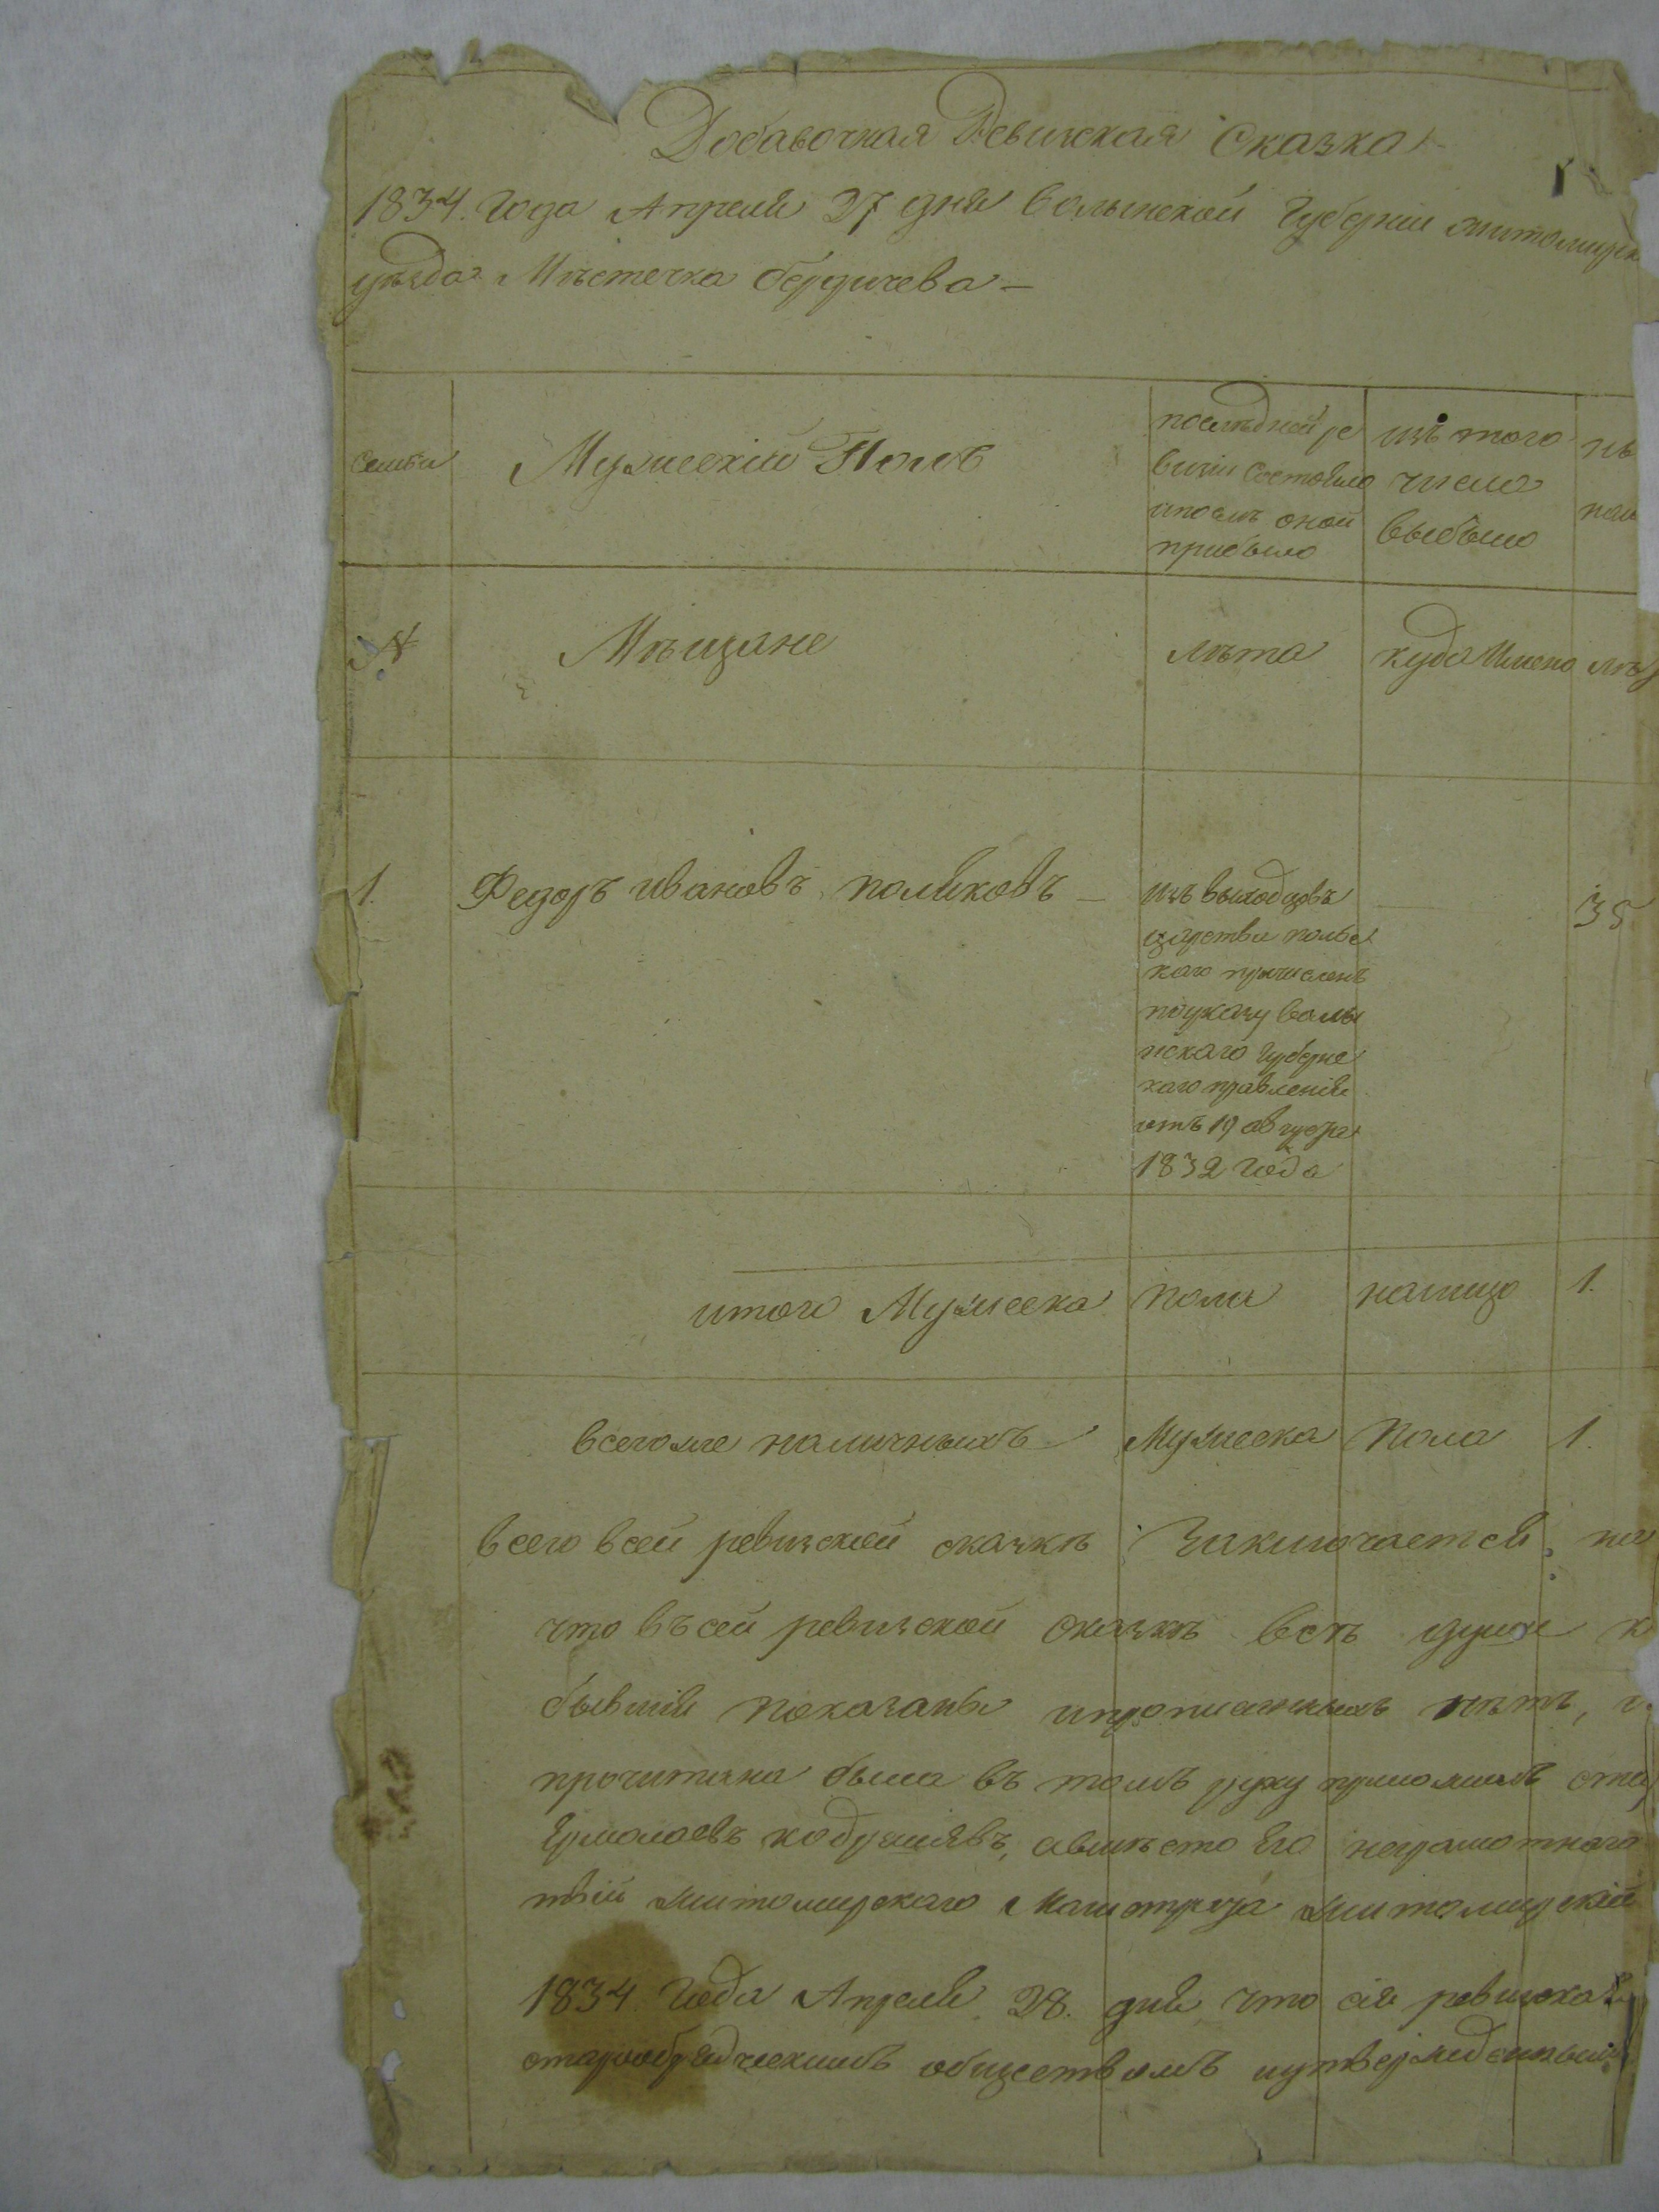 Добавочная Ревизская Сказка
1834. Года Апреля 27 дня Волынской Губернии житомирск
уѣзда Мѣстечка бердичева —
семьи
Мужескій Полъ
последней ре
визіи состояло
ипослѣ оной
прибыло
изъ того
числа
выбыло
нъ
№
Мѣщане
лѣта
куда Имено
лѣ
1.
Федоръ ивановъ поляковъ —
изъ выходцовъ
царства польс
каго причисленъ
поуказу волы
нскаго Губернс
каго правленія
отъ 19 августа
1832 Года
35
итого Мужеска пола налицо 1.
всегоже наличныхъ Мужеска Пола 1.
всего всей ревизской сказкѣ Заключается
что въ сей ревизской сказкѣ всѣ души
бывшія показаны ипрописанныхъ нѣтъ,
прочитана была въ томъ руку приложилъ ста
Ермолаевъ авмѣсто Его неграмотнаго
тій житомирскаго Магистрата житомирскій
1834. Года Апреля 28. дня что сія ревизская
старообрядческимъ обществомъ